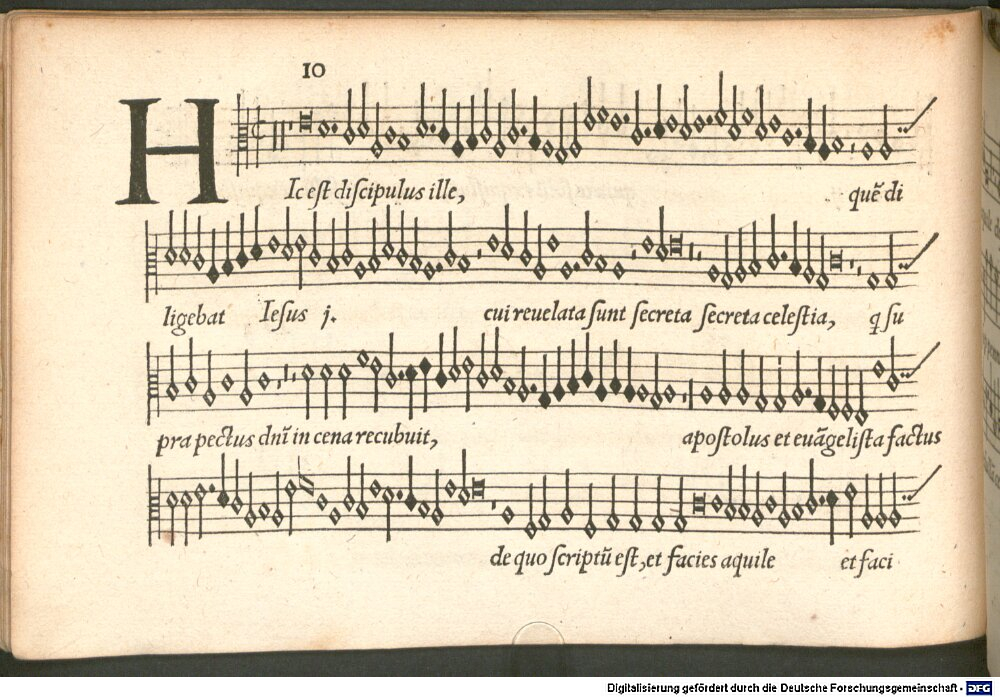 10
HIc est discipulus ille, quē di
ligebat Iesus ij. cui reuelata sunt secreta secreta celestia, q su
pra pectus dnī in cena recubuit, apostolus et euāgelista factus
de quo scriptū est, et facies aquile et faci
Digitalisierung gefördert durch die Deutsche Forschungsgemeinschaft - DFG